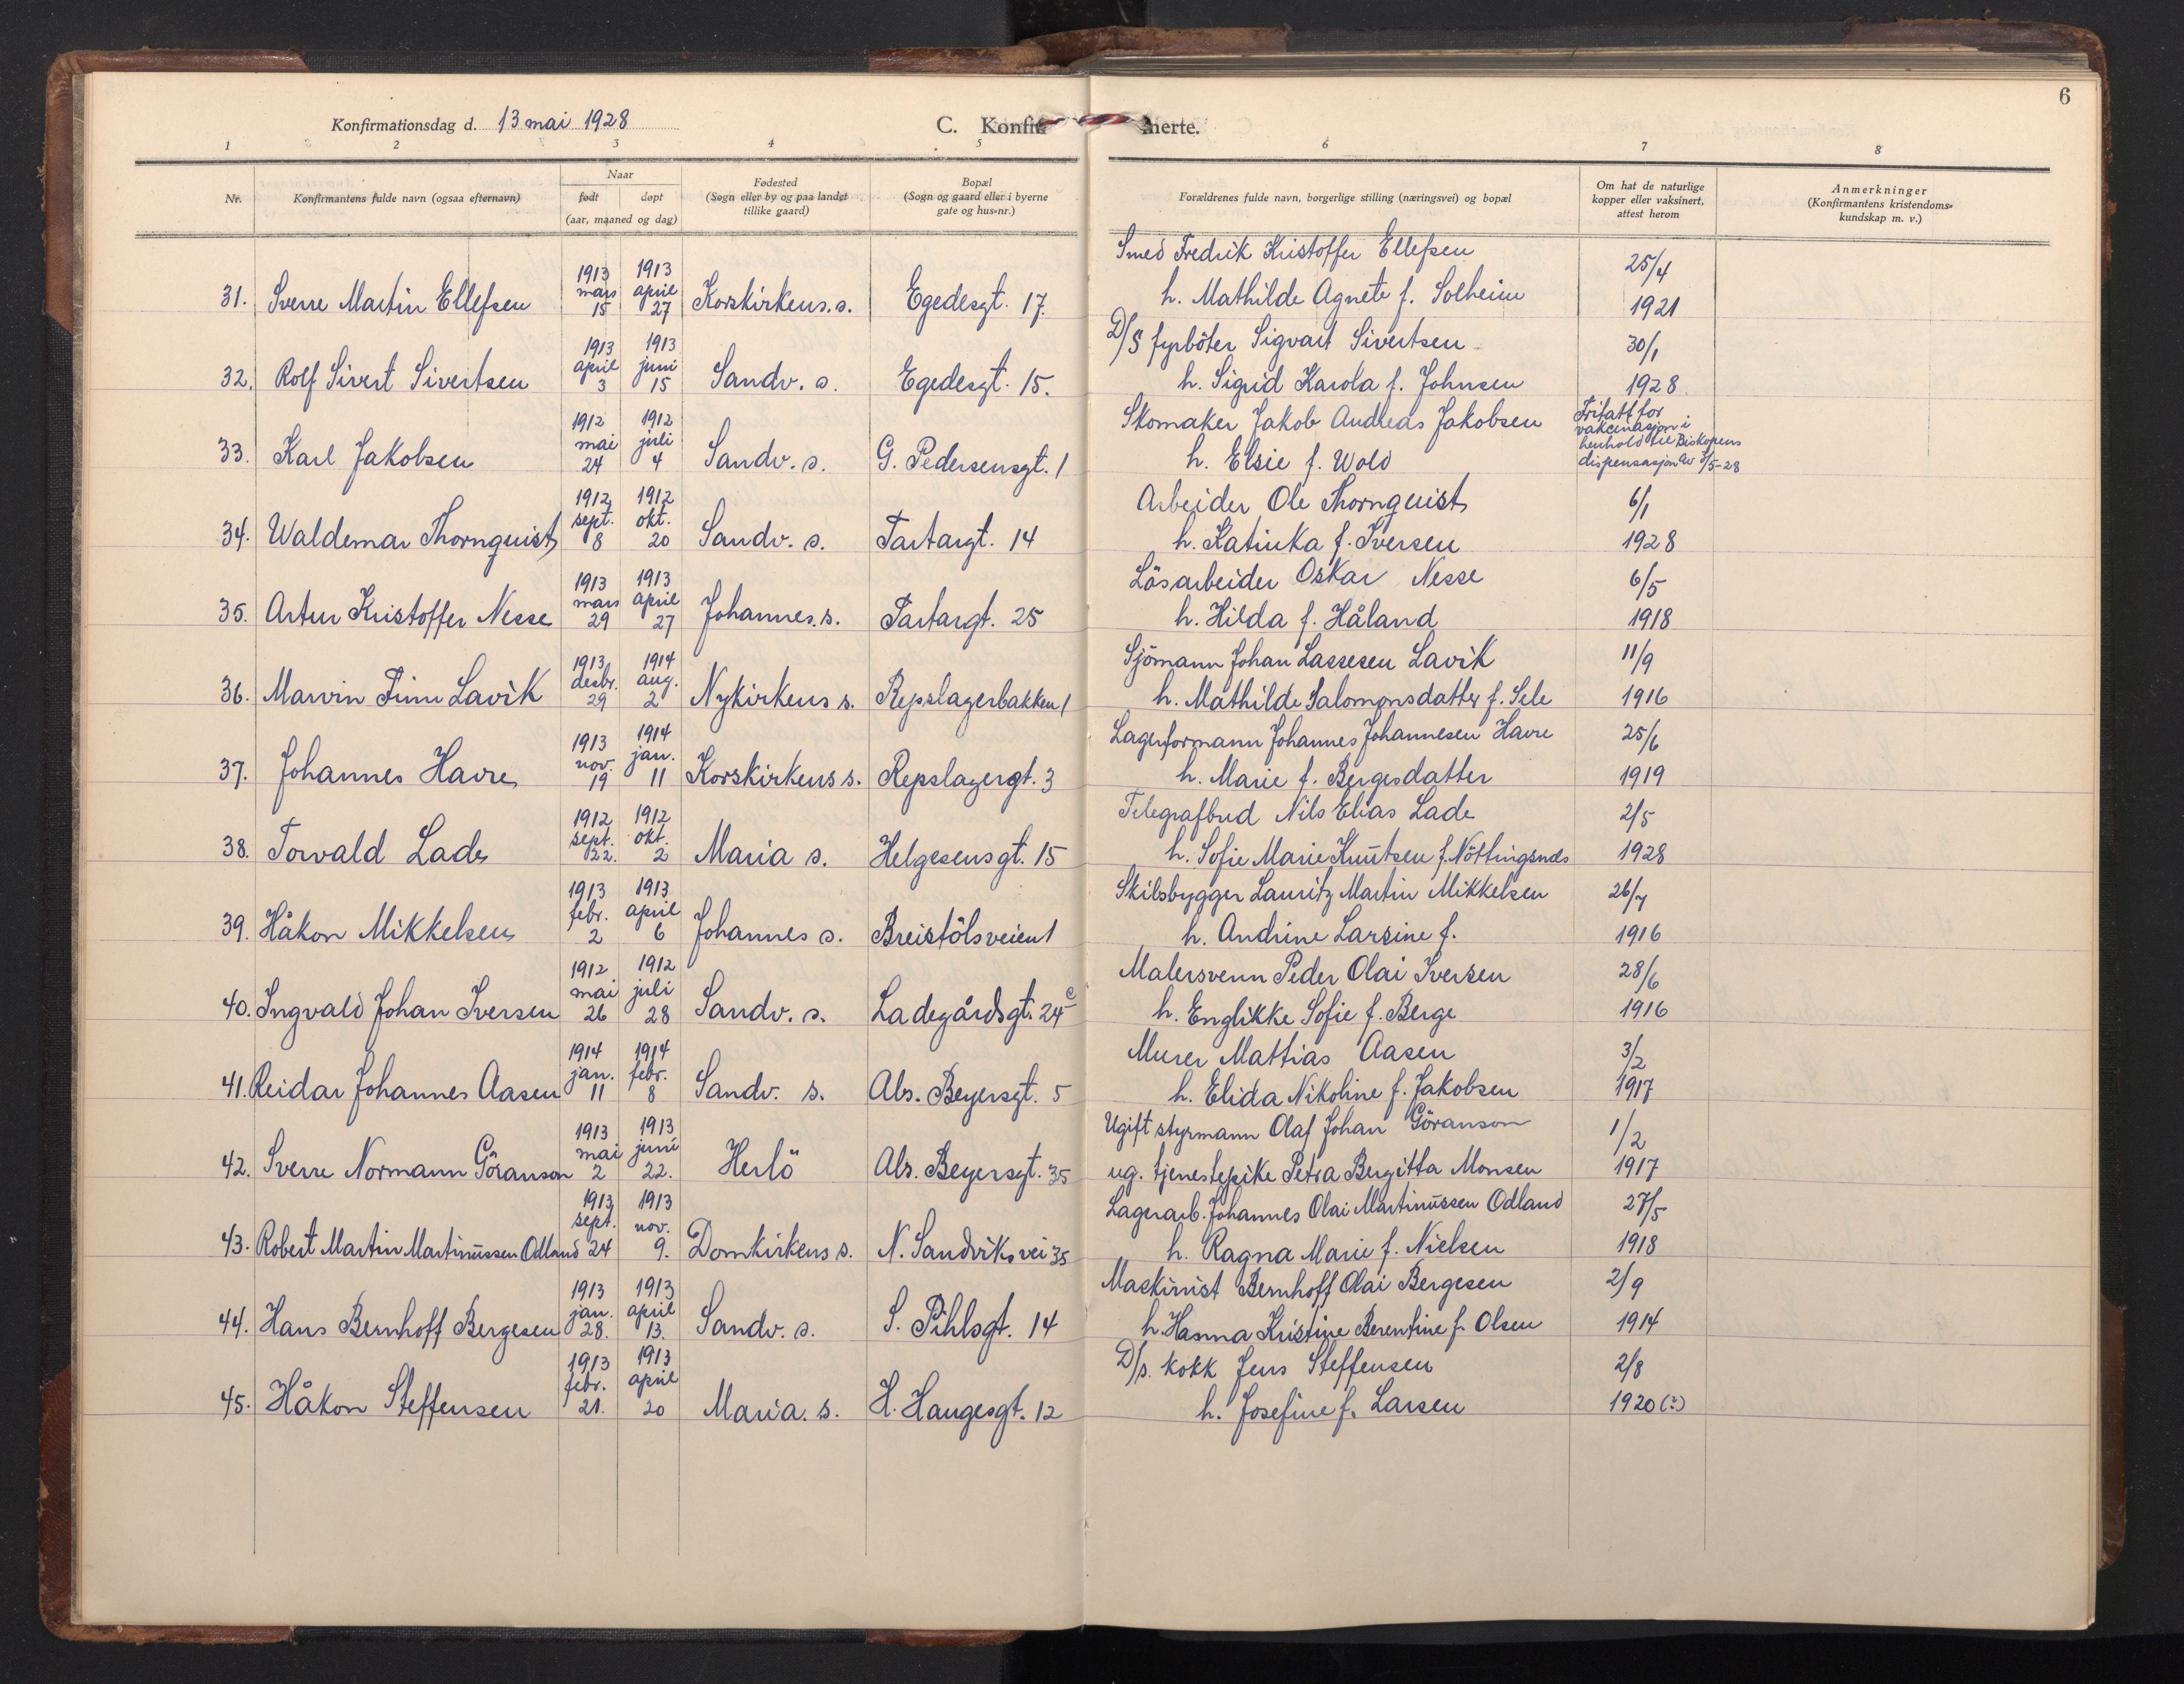 6
Konfirmationsdag d. 13 mai 1928
C. Konfir merte.
1 2 3 4 5 6 7 8
Nr. Konfirmantens fulde navn (ogsaa efternavn) Naar født døpt (aar, maaned og dag) Fødested (Sogn eller by og paa landet tillike gaard) Bopæl (Sogn og gaard eller i byerne gate og hus-nr.) Forældrenes fulde navn, borgerlige stilling (næringsvei) og bopæl Om hat de naturlige kopper eller vaksinert, attest herom Anmerkninger (Konfirmantens kristendoms-kundskap m. v.)
31. Sverre Martin Ellefsen 1913 mars 15 1913 april 27 Korskirkens. s. Egedesgt. 17. Smed Fredrik Kristoffer Ellefsen 25/4
h. Mathilde Agnete f. Solheim 1921
32. Rolf Sivert Sivertsen 1913 april 3 1913 juni 15 Sandv. s. Egedesgt. 15. D/S fyrböter Sigvart Sivertsen 30/1
h. Sigrid Karola f. Johnsen 1928
33. Karl Jakobsen 1912 mai 24 1912 juli 4 Sandv. s. G. Pedersensgt. 1 Skomaker Jakob Andreas Jakobsen Fritatt for vaksinasjon i
h. Elsie f. Wold henhold til Biskopens dispensasjon av 5/5-28
34. Waldemar Thornquist 1912 sept. 8 1912 okt. 20 Sandv. s. Tartargt. 14 Arbeider Ole Thornquist 6/1
h. Katinka f. Iversen 1928
35. Artur Kristoffer Nesse 1913 mars 29 1913 april 27 Johannes. s. Tartargt. 25 Lösarbeider Oskar Nesse 6/5
h. Hilda f. Håland 1918
36. Marvin Finn Lavik 1913 desbr. 29 1914 aug. 2 Nykirkens s. Repslagerbakken 1 Sjömann Johan Lassesen Lavik 11/9
h. Mathilde Salomonsdatter f. Sele 1916
37. Johannes Havre 1913 nov. 19 1914 jan. 11 Korskirkens s. Repslagergt. 3 Lagerformann Johannes Johannesen Havre 25/6
h. Marie f. Bergesdatter 1919
38. Torvald Lade 1912 sept. 22. 1912 okt. 2 Maria s. Helgesensgt. 15 Telegrafbud Nils Elias Lade 2/5
h. Sofie Marie Knutsen f. Nöttingsnes 1928
39. Håkon Mikkelsen 1913 febr. 2 1913 april 6 Johannes s. Breistölsveien 1 Skibsbygger Lauritz Martin Mikkelsen 26/7
h. Andrine Larsine f. 1916
40. Ingvald Johan Iversen 1912 mai 26 1912 juli 28 Sandv. s. Ladegårdsgt. 24 c Malersvenn Peder Olai Iversen 28/6
h. Englikke Sofie f. Berge 1916
41. Reidar Johannes Aasen 1914 jan. 11 1914 febr. 8 Sandv. s. Abs. Beyersgt. 5 Murer Mattias Aasen 3/2
h. Elida Nikoline f. Jakobsen 1917
42. Sverre Normann Göranson 1913 mai 2 1913 juni 22. Herlö Abs. Beyersgt. 35 Ugift styrmann Olaf Johan Göranson 1/2
ug. tjenestepike Petra Bergitta Monsen 1917
43. Robert Martin Martinussen Odland 1913 sept. 24 1913 nov. 9. Domkirkens s. N. Sandviksvei 35 Lagerarb. Johannes Olai Martinussen Odland 27/5
h. Ragna Marie f. Nielsen 1918
44. Hans Bernhoff Bergesen 1913 jan. 28. 1913 april 13. Sandv. s. S. Pihlsgt. 14 Maskinist Bernhoff Olai Bergesen 2/9
h. Hanna Kristine Berentine f. Olsen 1914
45. Håkon Steffensen 1913 febr. 21. 1913 april 20 Maria. s. H. Haugesgt. 12 D/s. kokk Jens Steffensen 2/8
h. Josefine f. Larsen 1920 (?)